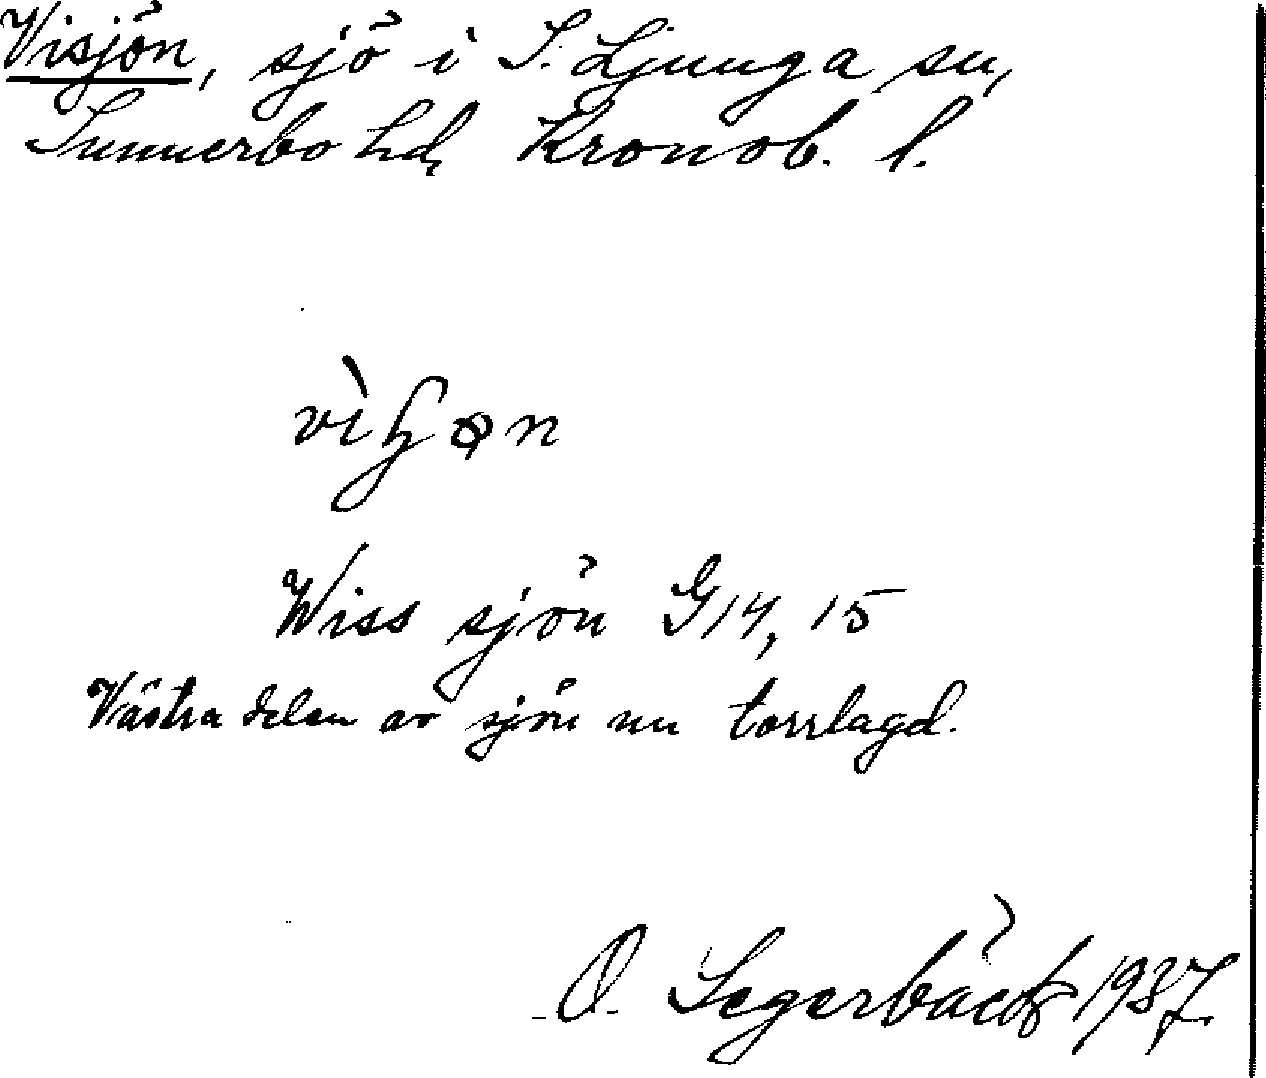 Visjön, sjö i S. Ljunga sn,
Sunnerbo hd, Kronob. l.
Wiss sjön G14, 15
Västra delen av sjön nu torrlagd.
O. Segerbäck 1937.